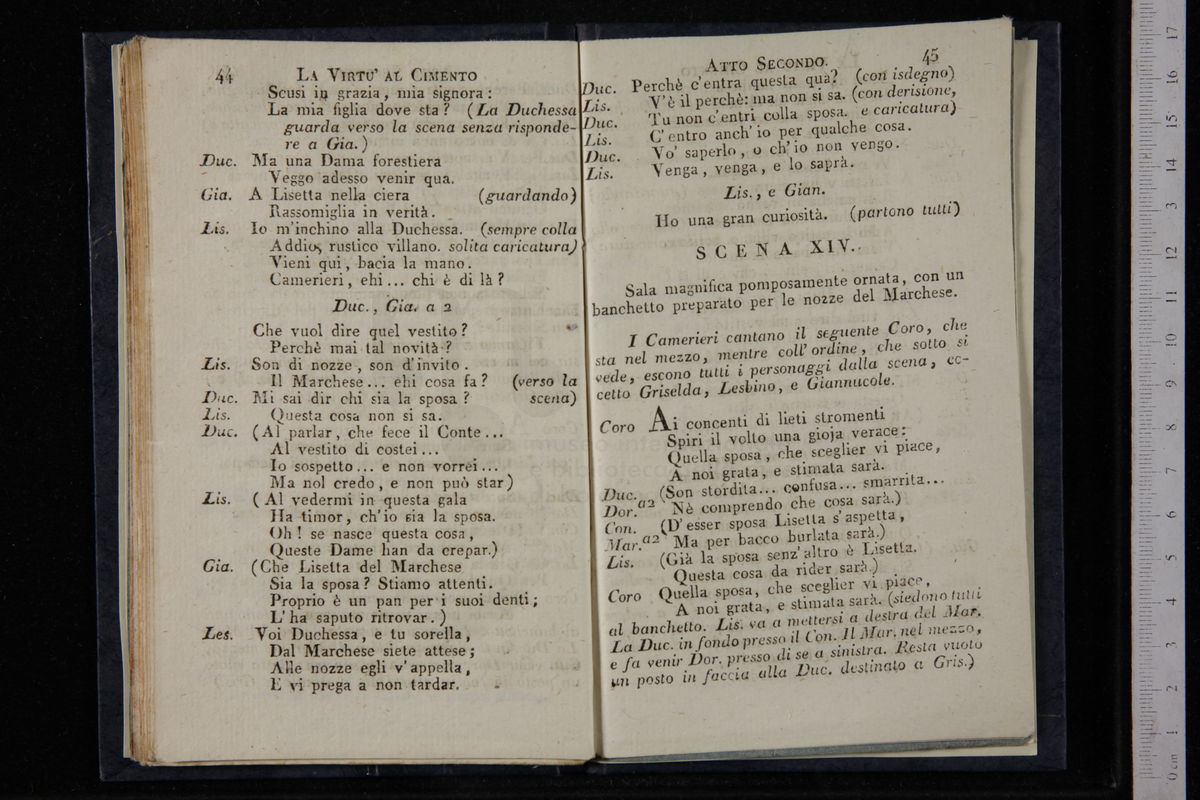 44
LA VIRTU' AL CIMENTO
Scusi in grazia, mia signora:
La mia figlia dove sta? (La Duchessa
guarda verso la scena senza risponde-
re a Gia.)
Duc. Ma una Dama forestiera
Veggo adesso venir qua.
Gia. A Lisetta nella ciera (guardando)
Rassomiglia in verità.
Lis. Io m'inchino alla Duchessa. (sempre colla
Addio, rustico villano. solita caricatura)
Vieni qui, bacia la mano.
Camerieri, ehi... chi è di là?
Duc., Gia. a 2
Che vuol dire quel vestito?
Perchè mai tal novità?
Lis. Son di nozze, son d'invito.
Il Marchese... ehi cosa fa? (verso la
Duc. Mi sai dir chi sia la sposa? scena)
Lis. Questa cosa non si sa.
Duc. (Al parlar, che fece il Conte...
Al vestito di costei...
Io sospetto... e non vorrei...
Ma nol credo, e non può star)
Lis. (Al vedermi in questa gala
Ha timor, ch'io sia la sposa.
Oh! se nasce questa cosa,
Queste Dame han da crepar.)
Gia. (Che Lisetta del Marchese
Sia la sposa? Stiamo attenti.
Proprio è un pan per i suoi denti;
L'ha saputo ritrovar.)
Les. Voi Duchessa, e tu sorella,
Dal Marchese siete attese;
Alle nozze egli v'appella,
E vi prega a non tardar.
45
ATTO SECONDO.
Duc. Perchè c'entra questa qua? (con isdegno)
Lis. V'è il perchè: ma non si sa. (con derisione,
Duc. Tu non c'entri colla sposa. e caricatura)
Lis. C'entro anch'io per qualche cosa.
Duc. Vo' saperlo, o ch'io non vengo.
Lis. Venga, venga, e lo saprà.
Lis., e Gian.
Ho una gran curiosità. (partono tutti)
SCENA XIV.
Sala magnifica pomposamente ornata, con un
banchetto preparato per le nozze del Marchese.
I Camerieri cantano il seguente Coro, che
sta nel mezzo, mentre coll'ordine, che sotto si
vede, escono tutti i personaggi dalla scena, ec-
cetto Griselda, Lesbino, e Giannucole.
Coro Ai concenti di lieti stromenti
Spiri il volto una gioja verace:
Quella sposa, che sceglier vi piace,
A noi grata, e stimata sarà.
Duc. (Son stordita... confusa... smarrita...
Dor. a2 Nè comprendo che cosa sarà.)
Con. (D'esser sposa Lisetta s'aspetta,
Mar. a2 Ma per bacco burlata sarà.)
Lis. (Già la sposa senz'altro è Lisetta.
Questa cosa da rider sarà.)
Coro Quella sposa, che sceglier vi piace,
A noi grata, e stimata sarà. (siedono tutti
al banchetto. Lis. va a mettersi a destra del Mar.
La Duc. in fondo presso il Con. Il Mar. nel mezzo,
e fa venir Dor. presso di se a sinistra. Resta vuoto
un posto in faccia alla Duc. destinato a Gris.)
0 cm 1 2 3 4 5 6 7 8 9 10 11 12 13 14 15 16 17